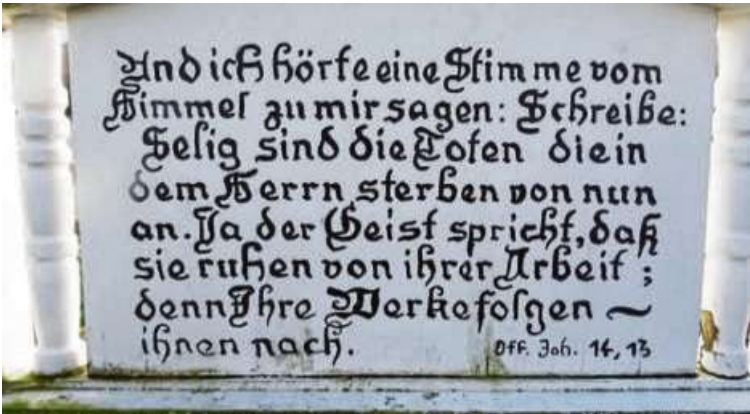 Und ich hörte eine Stimme vom
Himmel zu mir sagen: Schreibe:
Selig sind die Toten die in
dem Herrn sterben von nun
an. Ja der Geist spricht, daß
sie ruhen von ihrer Arbeit ;
denn Ihre Werke folgen ~
ihnen nach.
Off. Joh. 14, 13